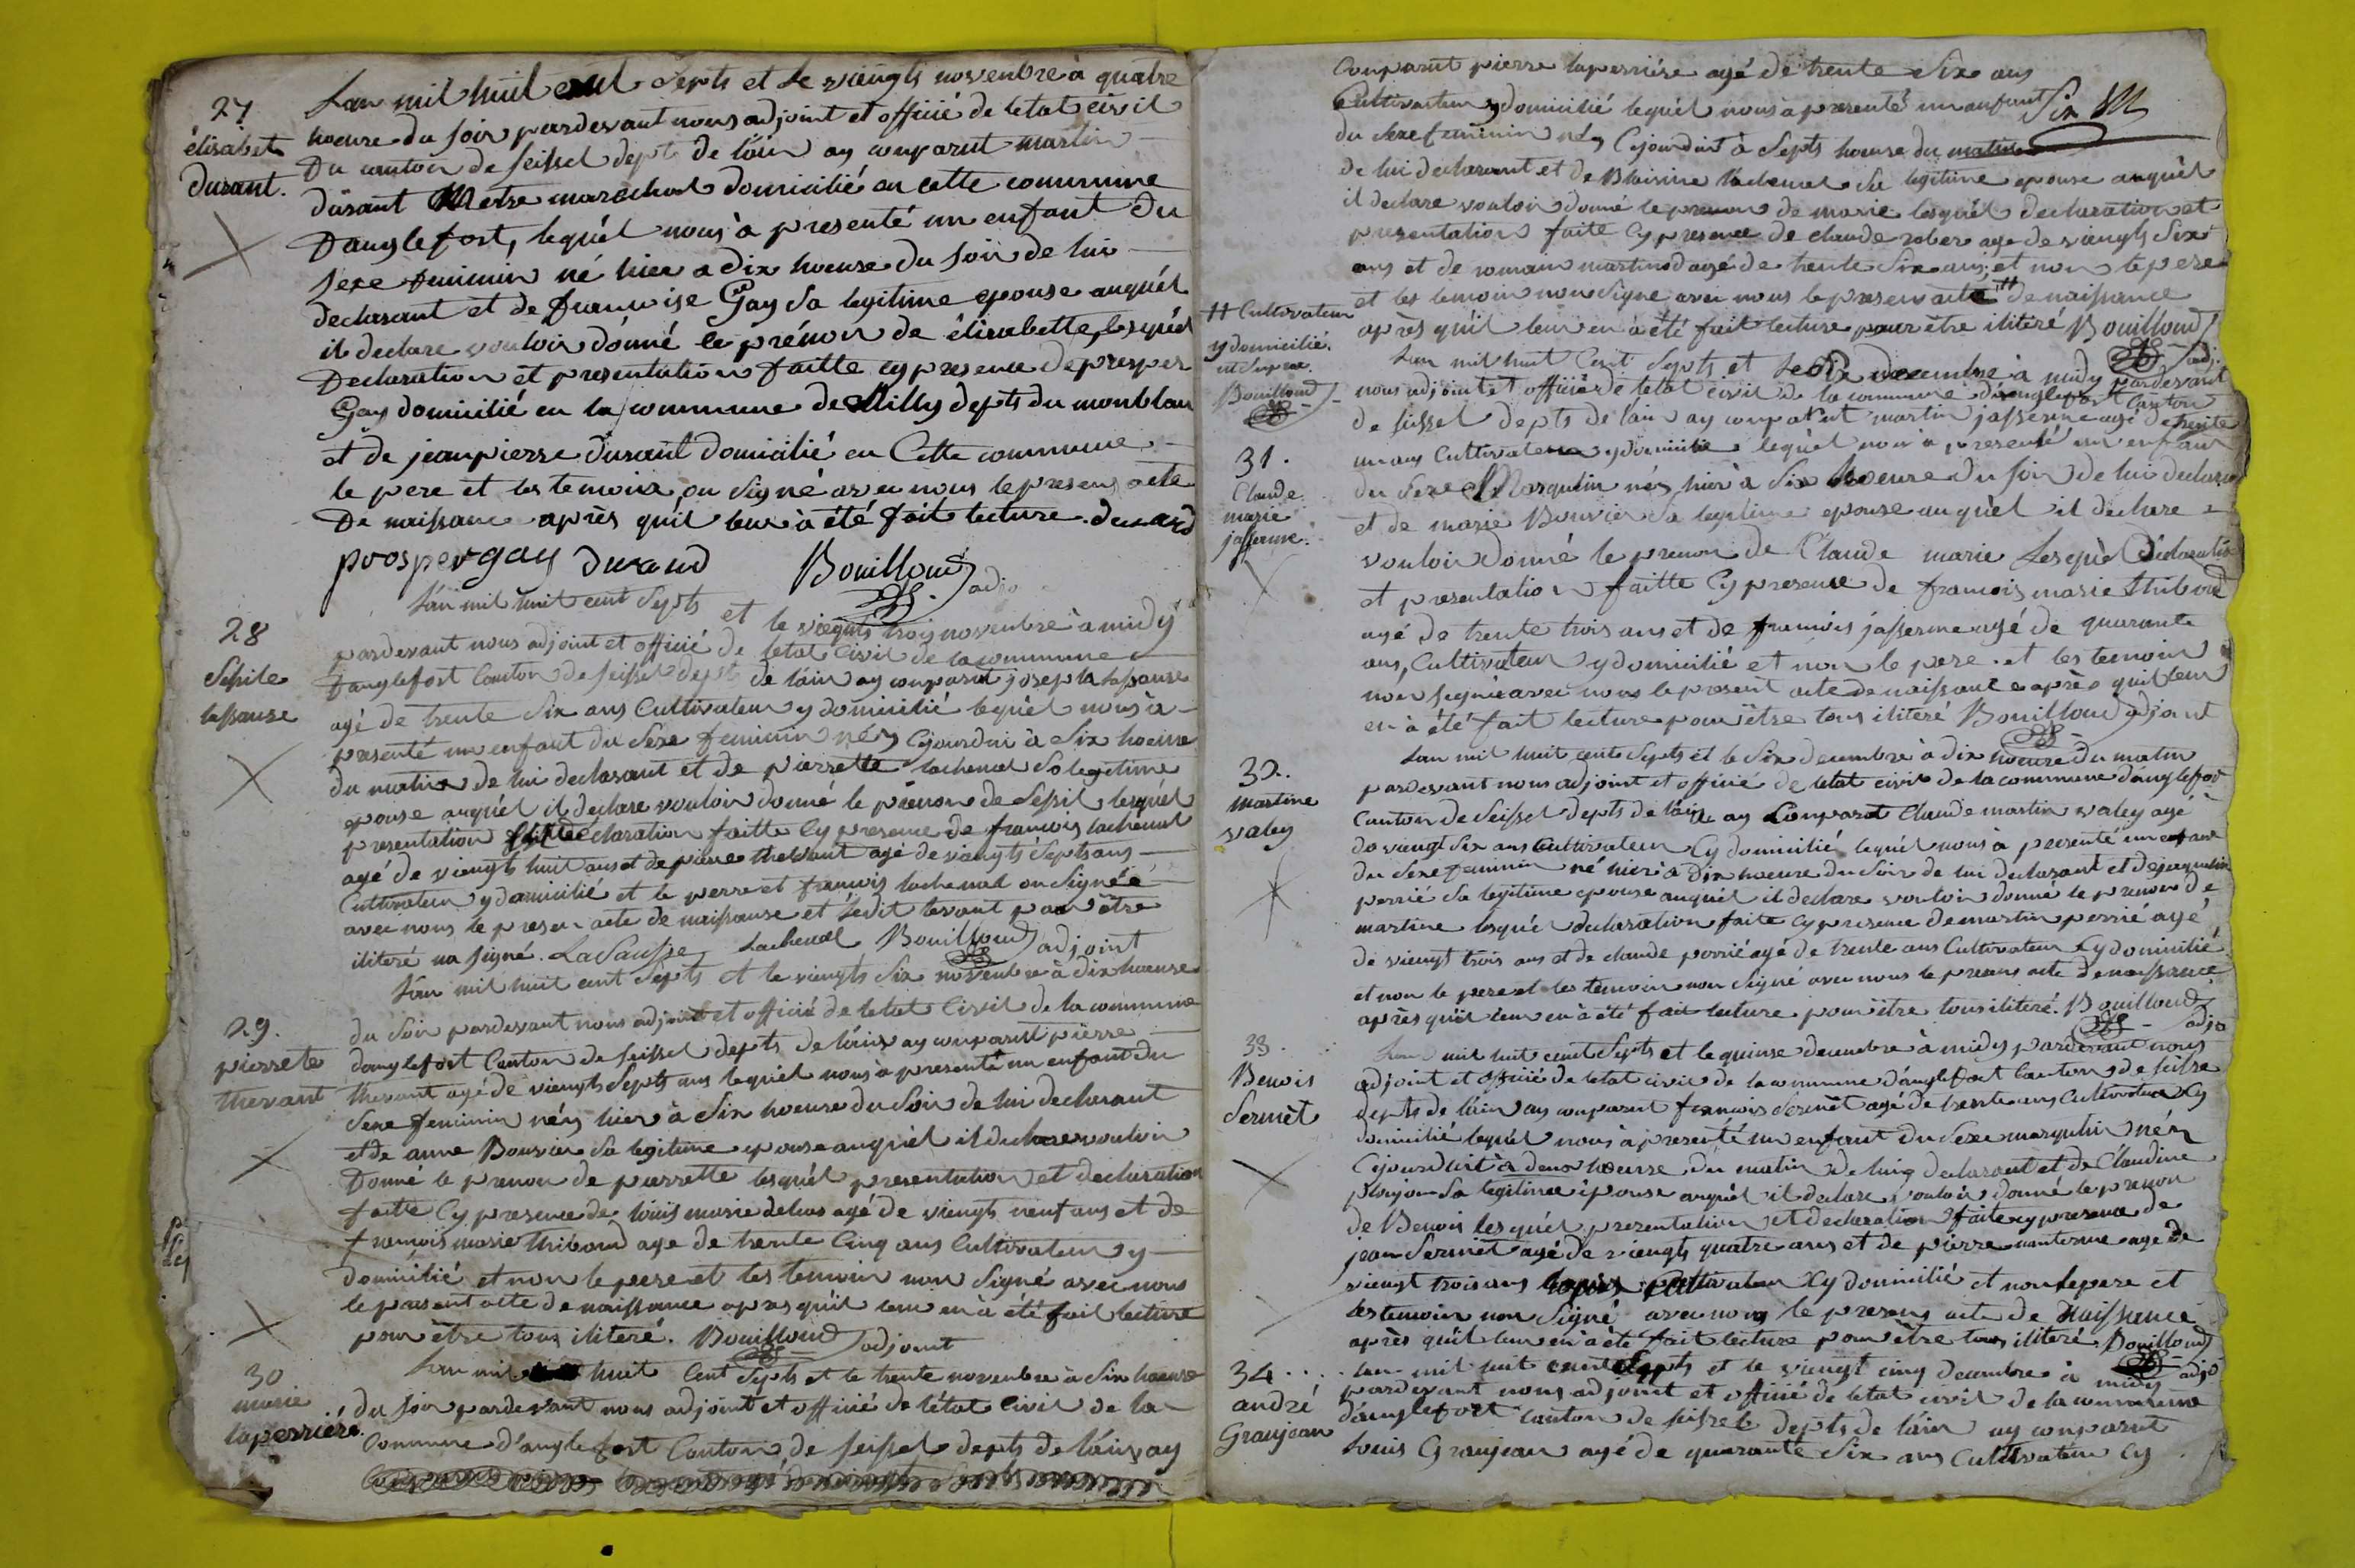 27
élisabet
durant.
Lan mil huil cent Septs et Le viengts novembre à quatre
hoeure du soir pardevant nous adjoint et officié de letat civil
Du canton de seissel depts de láin ay comparut martin
durant Metre marechal domicilié en cette commune
Danglefort, lequél nous à presenté un enfant Du
sexe feminin né hier a dix hoeure du soir de lui
declarant et de francoise Gay Sa legitime epouse auquél
il declare vouloir donné le prénon de élisabette, lesquél
Declaration et presentation faitte cy presence de prosper
Gay domicilié en la commune de Milly depts du monblan
et de jeanpierre durant domicilié en Cette commune
le pere et les temoins on Signé avec nous le presens acte
De naissance après quil leur à été fait lecture. durand
prosper gay durand Bouilloud adjo
28
Sesile
lassause
Lan mil huit cent Septs et le viegnts trois novembre à midÿ
pardevant nous adjoint et officié de letat Civil de la commune
Danglefort Canton de seissel depts de láin ay comparut joseph lassause
agé de trente Six ans Cultivateur y domicilié lequèl nous à
presenté un enfant du Sexe feminin néy Cejourdui à Six hoeure
du matin de lui declarant et de pierrette lachenal Sa legitime
epouse auquél il declare vouloir donné le prénon de Sesil lesquél
presentation et declaration faitte Cy presence de francois lachenal
agé de viengts huit ans et de pierre thevant agé de viengts Septs ans
Cultivateur y domicilié et le perre et francois lachenal on Signéé
avec nous le presen acte de naissanse et ledit tevant pou être
ilitéré na signé. LaSausse Lachenal Bouilloud adjoint
29.
pierrete
thevant
Lan mil huit cent Septs et le viengts Six novembre à dix hoeure
du Soir pardevant nous adjoint et officié de letat Civil de la commune
danglefort Canton de seissel depts de láin ay comparut pierre
thevant agé de viengts Septs ans lequél nous à presenté un enfant du
Sexe feminin néy hier à Six hoeure du Soir de lui declarant
et de anne Bouvier Sa legitime epouse auquél il declare vouloir
Donné le prenon de pierrette lesquél presentation et declaration
faitte Cy presence de loüis marie delvas agé de viengts neuf ans et de
francois marie thiboud age de trente Cinq ans Cultivateur y
domicilié et non le pere et les temoin non Signé avec nous
le present acte de naissance apres quil leur en à été fait lecture
pour être tous ilitéré. Bouilloud adjoint
30
marie
laperriére.
Lan mil huit Cent Septs et le trente novembre à Six hoeure
du soir pardevant nous adjoint et officié de létat Civil de la
Commune d'anglefort Canton de seissel depts de láin ay
Comparut pierre laperriére agé de trente Six ans
Cultivateur y domicilié lequél nous à presenté un enfant
du Sexe feminin néy Cejourduit à Septs hoeure du matin
de lui declarant et de Blaisine lachenal Sa legitime epouse auquél
il declare vouloir donné le prenon de marie lesquél declaration et
presentation faite Cy presence de claude rober age de viengts Six
ans et de romain martinod agé de trente Six ans, et non le pere
et les temoin non Signe avec nous le presens acte de naissance
après quil leur en à été fait lecture pour être ilitéré Bouilloud adj.
++ Cultivateur
y domicilié.
Bouilloud
31.
Claude
marie
jasserme.
Lan mil huit Cent Septs et Le Six decembre à midy pardevant
nous adjoint et officié de letat civil de la commune d'anglefort Canton
de seissel depts de láin ay comparut martin jasserme agé de trente
un ans Cultivateur y domicilié lequél nous à presenté un enfan
du Sexe Masqulin néy hier à Six hoeure du soir de lui declaran
et de marie Bouvier Sa legitime epouse auquèl il declare
vouloir donné le prenon de Claude marie Lesquèl declaration
et presentation faitte Cy presence de francois marie thiboud
agé de trente trois ans et de francois jasserme agé de quarante
ans, Cultivateur y domicilié et non le pere et les temoin
non signé avec nous le present acte de naissance après quil leur
en à été fait lecture pour être tous ilitéré Bouilloud adjoint
32.
Martine
valey
Lan mil huit cent Septs et le Six decembre à dix hoeure du matin
pardevant nous adjoint et officié de letat civil de la commune d'anglefor
Canton de Seissel depts de láin ay Comparut Claude martin valey agé
de viengt Six ans Cultivateur Cy domicilié lequél nous à presenté un enfant
du Sexe feminin né hier à Dix hoeure du Soir de lui declarant et de jaqueline
perrié Sa legitime epouse auquél il declare vouloir donné le prenon de
martine lesquél declaration faite Cy presence de martin perrié agé
de viengt trois ans et de claude perrié agé de trente ans Cultivateur Cy domicilié
et non le pere et les temoin non Signé avec nous le presens acte de naissance
après quil leur en à été fait lecture pour être tous ilitéré. Bouilloud adjo
33.
Benois
Sermèt
Lan mil huit cent Septs et le quinse decembre à midy pardevant nous
adjoint et officié de letat civil de la commune d'anglefort Canton de seissel
depts de láin ay comparut francois Sermèt agé de trente ans Cultivateur Cy
domicilié lequél nous à presenté un enfant du Sexe masqulin néy
Cejourduit à deux hoeure du matin de luiy declarant et de Claudine
Sa legitime épouse auquél il declare vouloir donné le prenon
de Benois lesquél prezentation et declaration faite cy presence de
jean Sermèt agé de viengts quatre ans et de pierre age de
viengt trois ans Cultivateur Cy domicilié et non le pere et
les temoin non Signé avec nous le presens acte de Naissence
après quil leur en à été fait lecture pour être tous ilitéré. Bouilloud adjo
34
andré
Granjean
Lan mil huit cent Septs et le viengt cinq decembre à midy
pardevant nous adjoint et officié de letat civil de la commune
d'anglefort canton de seissel depts de láin ay comparut
Louis Granjean agé de quarante Six ans Cultivateur Cy